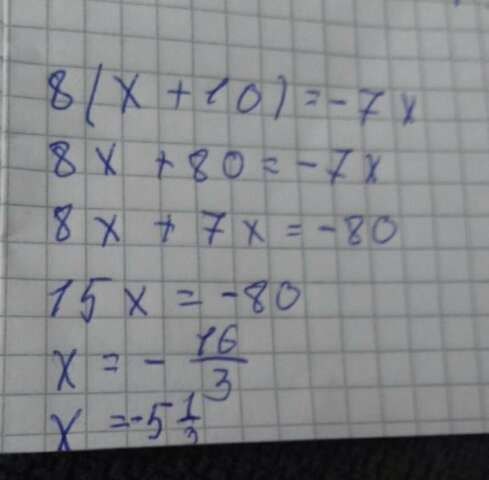 8(x+10)=-7x
8x+80=-7x
8x+7x=-80
15x=-80
x=-16/3
x=-5 1/3